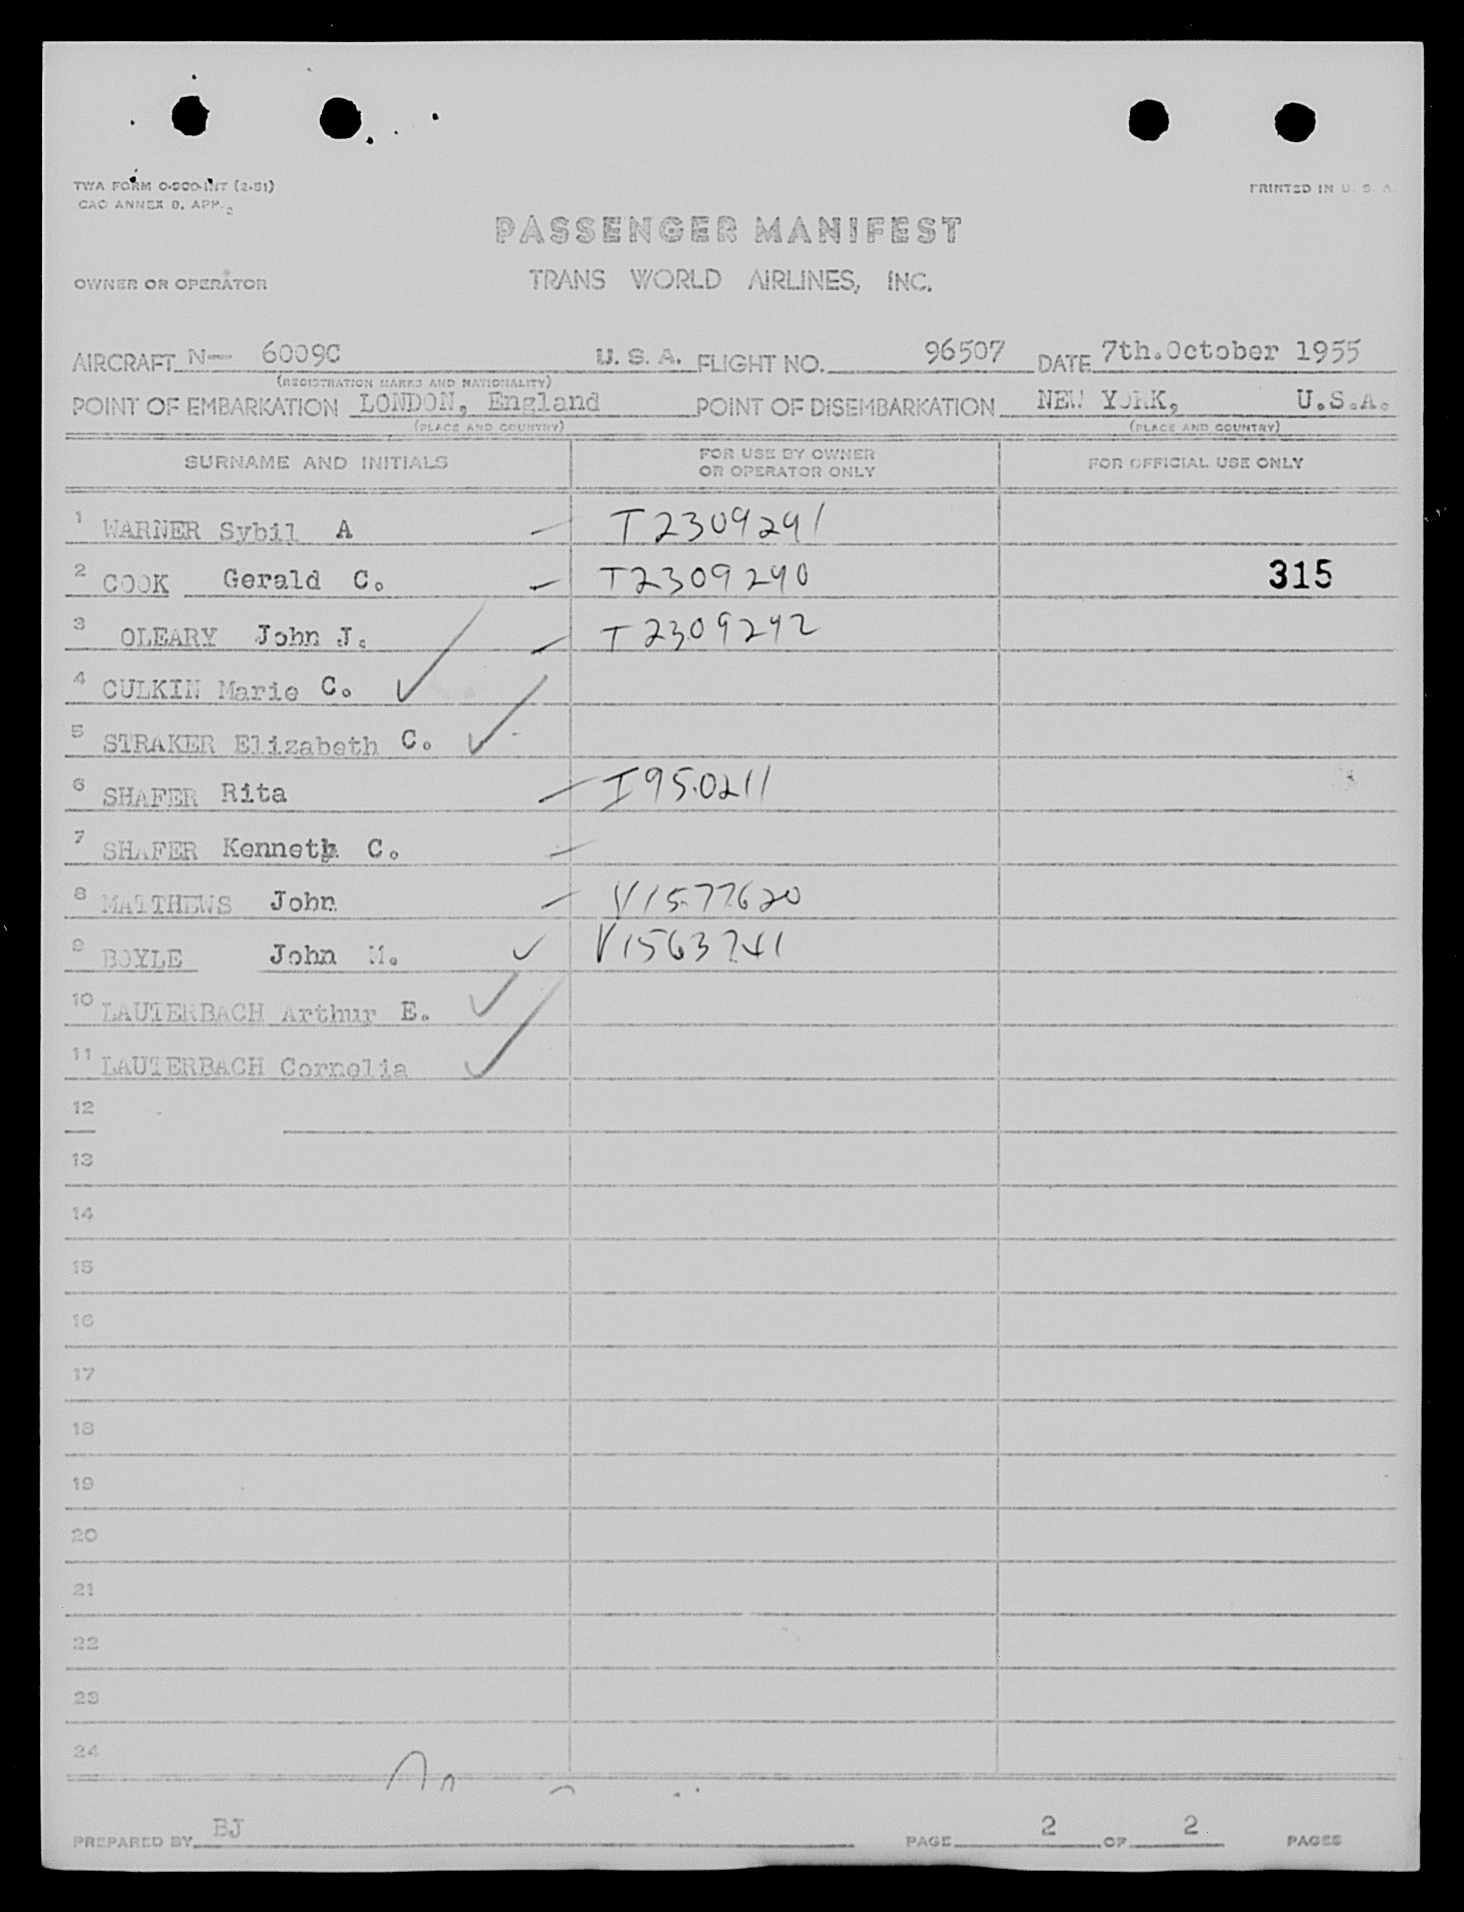 TWA FORM O-900-INT (2-51)
PRINTED IN U. S. A.
CAO ANNEX 9, APP. 2
PASSENGER MANIFEST
OWNER OR OPERATOR
TRANS WORLD AIRLINES, INC.
AIRCRAFT N-- 6009C U. S. A. FLIGHT NO. 96507 DATE 7th.October 1955
(REGISTRATION MARKS AND NATIONALITY)
POINT OF EMBARKATION LONDON, England POINT OF DISEMBARKATION NEW YORK, U.S.A.
(PLACE AND COUNTRY) (PLACE AND COUNTRY)
SURNAME AND INITIALS
FOR USE BY OWNER
OR OPERATOR ONLY
FOR OFFICIAL USE ONLY
1 WARNER Sybil A - T2309291
2 COOK Gerald C. - T2309290 315
3 OLEARY John J. - T2309292
4 CULKIN Marie C. ✓
5 STRAKER Elizabeth C. ✓
6 SHAFER Rita - I950211
7 SHAFER Kenneth C. -
8 MATTHEWS John - V1577620
9 BOYLE John M. ✓ V1563741
10 LAUTERBACH Arthur E. ✓
11 LAUTERBACH Cornelia ✓
12
13
14
15
16
17
18
19
20
21
22
23
24
PREPARED BY BJ PAGE 2 OF 2 PAGES